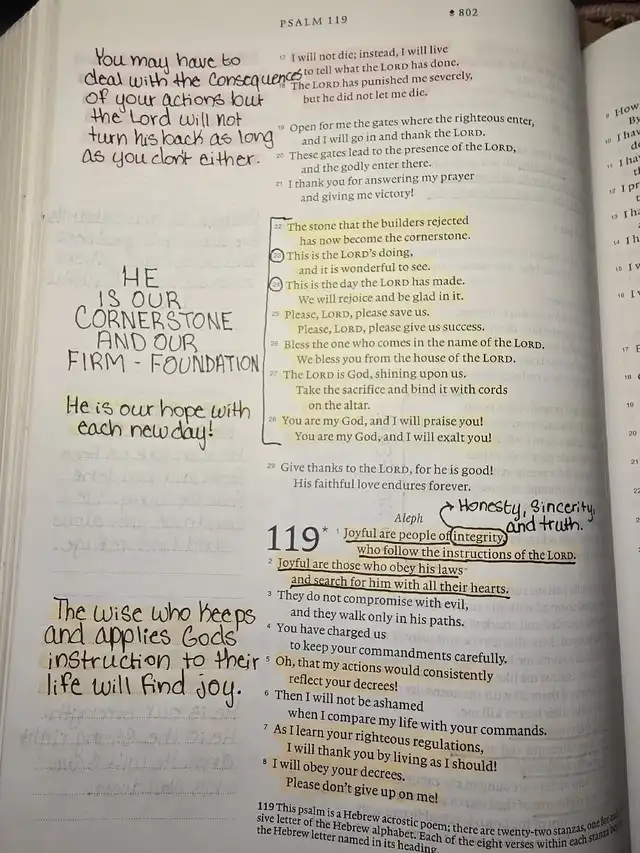 PSALM 119
802
You may have to
deal with the consequences
of your actions but
the Lord will not
turn his back as long
as you don't either.
17 I will not die; instead, I will live
to tell what the LORD has done.
18 The LORD has punished me severely,
but he did not let me die.
19 Open for me the gates where the righteous enter,
and I will go in and thank the LORD.
20 These gates lead to the presence of the LORD,
and the godly enter there.
21 I thank you for answering my prayer
and giving me victory!
22 The stone that the builders rejected
has now become the cornerstone.
23 This is the LORD's doing,
and it is wonderful to see.
24 This is the day the LORD has made.
We will rejoice and be glad in it.
25 Please, LORD, please save us.
Please, LORD, please give us success.
26 Bless the one who comes in the name of the LORD.
We bless you from the house of the LORD.
27 The LORD is God, shining upon us.
Take the sacrifice and bind it with cords
on the altar.
28 You are my God, and I will praise you!
You are my God, and I will exalt you!
HE
IS OUR
CORNERSTONE
AND OUR
FIRM - FOUNDATION
He is our hope with
each new day!
29 Give thanks to the LORD, for he is good!
His faithful love endures forever.
Honesty, Sincerity,
and truth.
Aleph
119* 1 Joyful are people of integrity,
who follow the instructions of the LORD.
2 Joyful are those who obey his laws
and search for him with all their hearts.
3 They do not compromise with evil,
and they walk only in his paths.
4 You have charged us
to keep your commandments carefully.
5 Oh, that my actions would consistently
reflect your decrees!
6 Then I will not be ashamed
when I compare my life with your commands.
7 As I learn your righteous regulations,
I will thank you by living as I should!
8 I will obey your decrees.
Please don't give up on me!
The wise who keeps
and applies Gods
instruction to their
life will find joy.
119 This psalm is a Hebrew acrostic poem; there are twenty-two stanzas, one for
sive letter of the Hebrew alphabet. Each of the eight verses within each stanza
the Hebrew letter named in its heading.
9 How
10 I hav
11 I ha
12 I pr
14 I h
15 I v
16 I
17
18
19
20
21
22